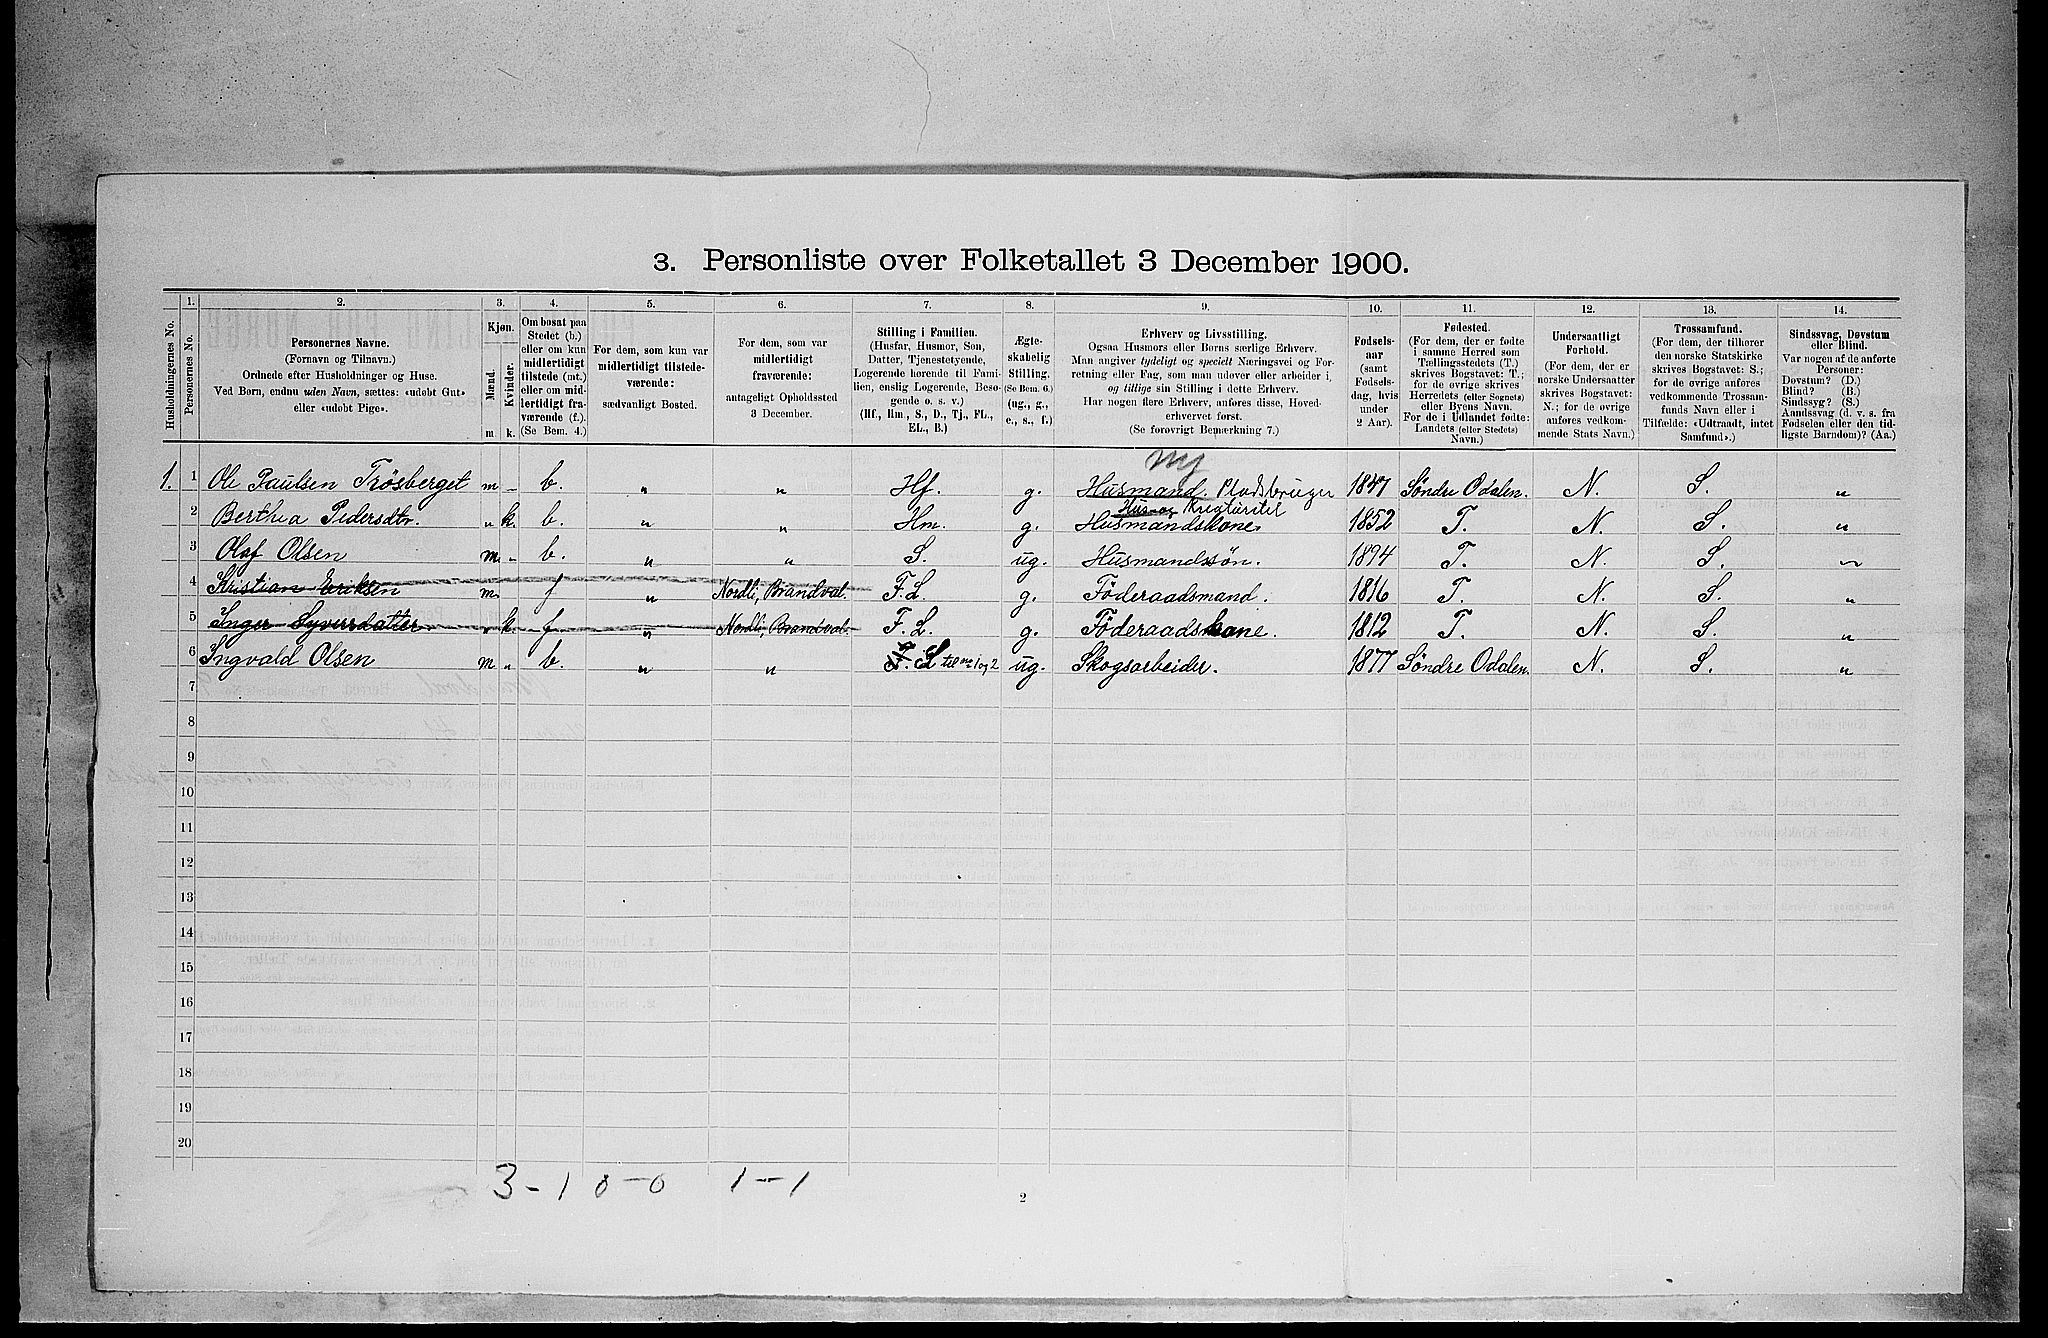 3. Personliste over Folketallet 3 December 1900.
Husholdningernes No.
1.
Personernes No.
2.
Personernes Navne.
(Fornavn og Tilnavn.)
Ordnede efter Husholdninger og Huse.
Ved Børn, endnu uden Navn, sættes: «udøbt Gut»
eller «udøbt Pige».
3.
Kjøn.
Mænd.
Kvinder.
m. k.
4.
Om bosat paa
Stedet (b.)
eller om kun
midlertidigt
tilstede (mt.)
eller om mid-
lertidigt fra-
værende (f.).
(Se Bem. 4.)
5.
For dem, som kun var
midlertidigt tilstede-
værende:
sædvanligt Bosted.
6.
For dem, som var
midlertidigt
fraværende:
antageligt Opholdssted
3 December.
7.
Stilling i Familien.
(Husfar, Husmor, Søn,
Datter, Tjenestetyende,
Logerende hørende til Fami-
lien, enslig Logerende, Beso-
gende o. s. v.)
(Hf., Hm., S., D., Tj., FL.,
EL., B.)
8.
Ægte-
skabelig
Stilling.
(Se Bem. 6.)
(ug., g.,
e., s., f.)
9.
Erhverv og Livsstilling.
Ogsaa Husmors eller Børns særlige Erhverv.
Man angiver tydeligt og specielt Næringsvei og For-
retning eller Fag, som man udøver eller arbeider i,
og tillige sin Stilling i dette Erhverv.
Har nogen flere Erhverv, anføres disse, Hoved-
erhvervet først.
(Se forøvrigt Bemærkning 7.)
10.
Fødsels-
aar
(samt
Fødsels-
dag, hvis
under
2 Aar).
11.
Fødested.
(For dem, der er fødte
i samme Herred som
Tællingsstedets (T.)
skrives Bogstavet: T.;
for de øvrige skrives
Herredets (eller Sognets)
eller Byens Navn.
For de i Udlandet fødte:
Landets (eller Stedets)
Navn.)
12.
Undersaatligt
Forhold.
(For dem, der er
norske Undersaatter
skrives Bogstavet:
N.; for de øvrige
anføres vedkom-
mende Stats Navn.)
13.
Trossamfund.
(For dem, der tilhører
den norske Statskirke
skrives Bogstavet: S.;
for de øvrige anføres
vedkommende Trossam-
funds Navn eller i
Tilfælde: «Udtraadt, intet
Samfund».)
14.
Sindssvag, Døvstum
eller Blind.
Var nogen af de anførte
Personer:
Døvstum? (D.)
Blind? (B.)
Sindssyg? (S.)
Aandssvag (d. v. s. fra
Fødselen eller den tid-
ligste Barndom)? (Aa.)
1. 1 Ole Paulsen Trösberget m - b. " " Hf. g. Husmand. Pladsbruger 1847 Söndre Odalen. N. S. "
Hus-og Kreaturstel
2 Berthea Pedersdtr. " k. b. " " Hm. g. Husmandskone 1852 T. N. S. "
3 Olaf Olsen m. - b. " " S. ug. Husmandssön. 1894 T. N. S. "
4 Kristian Eriksen m. f " Nordli, Brandval. F. L. g. Föderaadsmand. 1816 T. N. S. "
5 Inger Syversdatter " k. f " Nordli, Brandval. F. L. g. Föderaadskone. 1812 T. N. S. "
6 Ingvald Olsen m. " b. " " S til no 1 og 2 ug. Skogsarbeider. 1877 Söndre Odalen. N. S. "
7
8
9
10
11
12
13
14
15
16
17
18
19
20
3 - 1 0 - 0 1 - 1
2